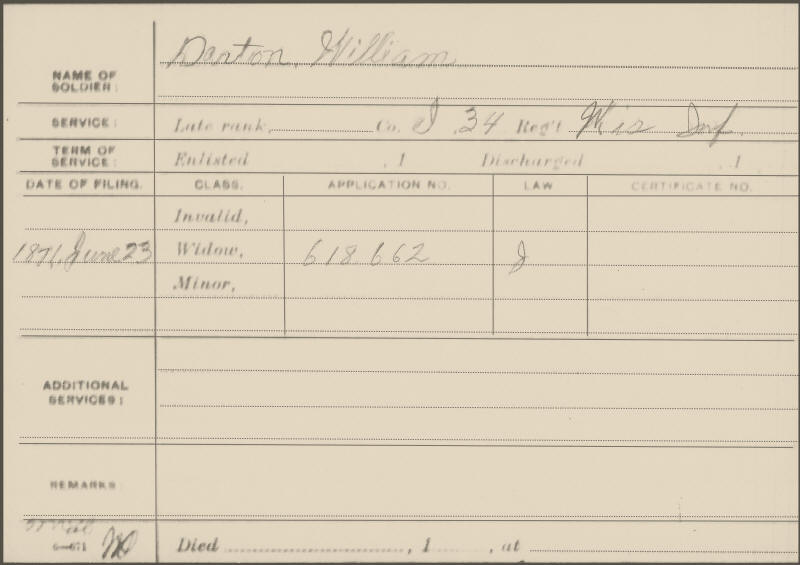 Danton, William
NAME OF
SOLDIER:
SERVICE: Late rank, Co. I, 34 Reg't Wis Inf.
TERM OF
SERVICE: Enlisted , 1 Discharged , 1
DATE OF FILING. CLASS. APPLICATION NO. LAW CERTIFICATE NO.
Invalid,
June 23 Widow, 618.662 J
Minor,
ADDITIONAL
SERVICES:
REMARKS:
6—671 Died , 1 , at